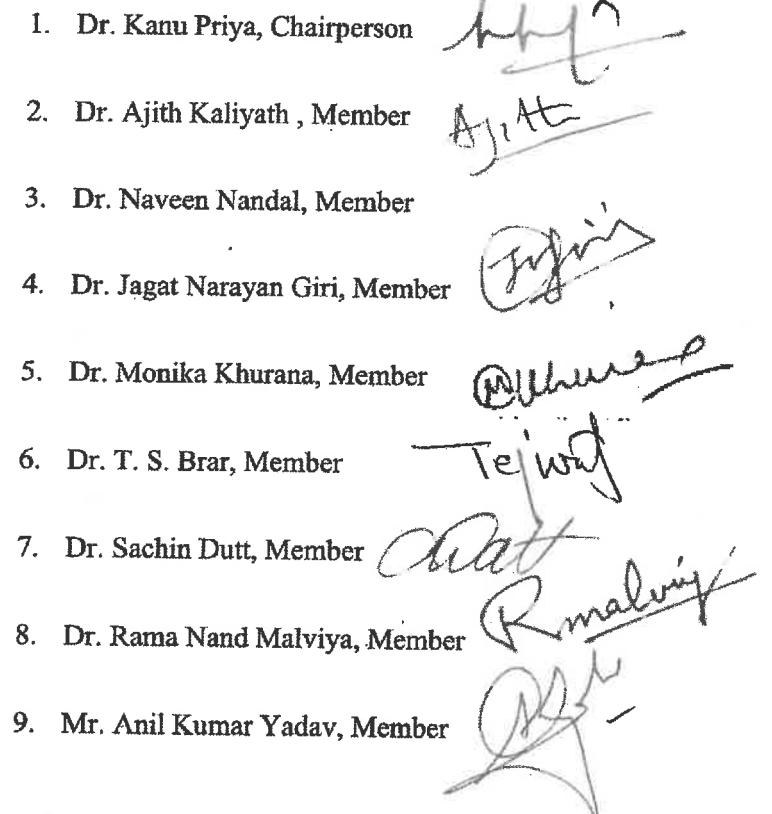 1. Dr. Kanu Priya, Chairperson
2. Dr. Ajith Kaliyath , Member Ajith
3. Dr. Naveen Nandal, Member
4. Dr. Jagat Narayan Giri, Member
5. Dr. Monika Khurana, Member
6. Dr. T. S. Brar, Member
7. Dr. Sachin Dutt, Member
8. Dr. Rama Nand Malviya, Member Rmalviy
9. Mr. Anil Kumar Yadav, Member